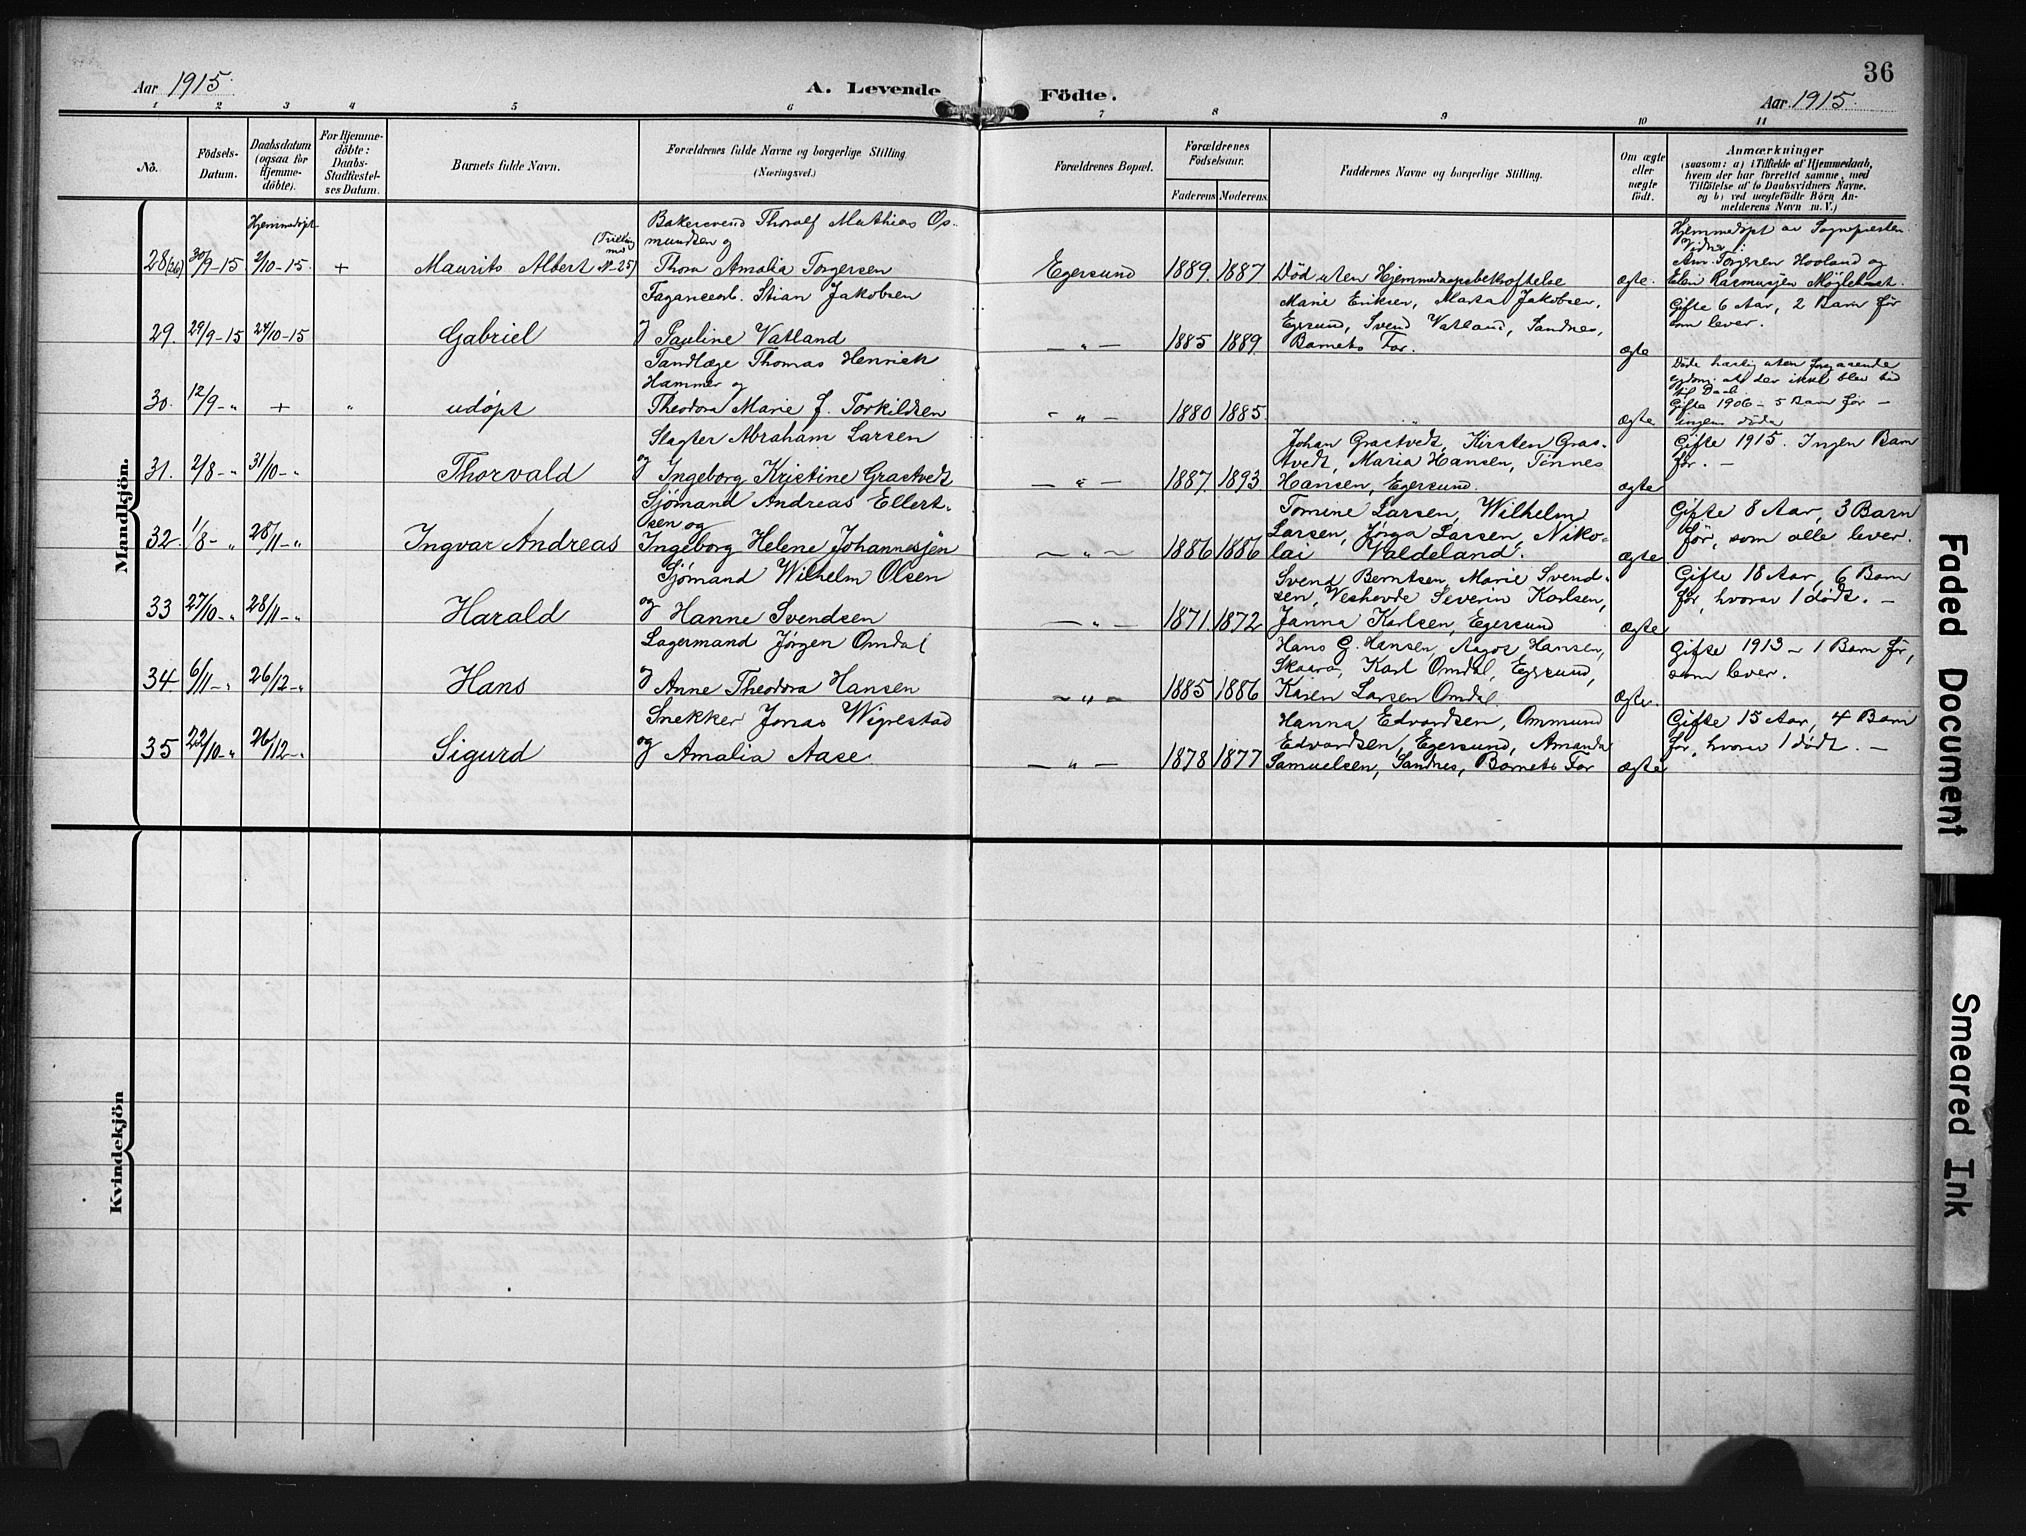 36
Aar 1915.
A. Levende Födte.
Aar 1915.
1 2 3 4 5 6 7 8 9 10 11
No.
Födsels-Datum.
Daabsdatum (ogsaa for Hjemme-döbte).
For Hjemme-döbte: Daabs-Stadfæstel-ses Datum.
Barnets fulde Navn.
Forældrenes fulde Navne og borgerlige Stilling
(Næringsvei.)
Forældrenes Bopæl.
Forældrenes Födselsaar.
Faderens Moderens
Faddernes Navne og borgerlige Stilling.
Om ægte eller uægte födt.
Anmærkninger
(saasom: a) i Tilfælde af Hjemmedaab,
hvem der har forrettet samme, med
Tilföielse af to Daabsvidners Navne.
og b) ved uægtefödte Börn An-
melderens Navn m. V.)
Mandkjön.
Hjemmedöpt
28(26) 30/9-15 2/10-15. +
Maurits Albert (Trilling med N-25)
Bakersvend Thoralf Mathias Os-
mundsen og
Thora Amalia Torgersen
Egersund 1889. 1887.
Död uten Hjemmedaapsbekræftelse
ægte.
Hjemmedöpt av Sognepresten.
Vidner:
Am. Torgersen Hovland og
Elen Rasmussen Möglehust.
29. 29/9-15 24/10-15
Gabriel
Stian Jakobsen
og Pauline Vatland
— „ — 1885 1889.
Marie Eriksen, Marta Jakobsen,
Egersund, Svend Vatland, Sandnes,
Barnets Far.
ægte
Gifte 6 Aar, 2 Barn för
som lever.
30. 12/9-„ + „
udöpt
Tandlæge Thomas Henrick
Hammer og
Theodora Marie J. Torkildsen
- „ - 1880 1885.
ægte
Döde hastig uten foregaaende
sygdom. at der ikke blev tid
til Daab.
Gifte 1906 - 5 Barn för -
ingen döde
31. 2/8-„ 31/10-„
Thorvald
Slagter Abraham Larsen
og Ingeborg Kristine Grastvedt
— „ — 1887. 1893.
Johan Grastvedt, Kirsten Gras-
tvedt, Maria Hansen, Tönnes
Hansen, Egersund.
ægte
Gifte 1915. Ingen Barn
för. —
32. 1/8-„ 28/11-„
Ingvar Andreas
Sjömand Andreas Ellert-
sen og
Ingeborg Helene Johannesjen
— „ — 1886 1886
Tomine Larsen, Wilhelm
Larsen, Jörga Larsen, Niko-
lai Valdeland.
ægte.
Gifte 8 Aar, 3 Barn
för, som alle lever.
33 27/10-„ 28/11-„
Harald
Sjömand Wilhelm Olsen
og Hanne Svendsen
— „ — 1871. 1872
Svend Berntsen, Marie Svend-
sen, Veshovde Severin Karlsen,
Janna Karlsen, Egersund
ægte
Gifte 18 Aar, 6 Barn
för, hvorav 1 dödt. —
34. 6/11-„ 26/12-„
Hans
Lagermand Jörgen Omdal
og Anne Theodora Hansen
— „ — 1885 1886
Hans G. Hansen, Aagot Hansen,
Skaara, Karl Omdal, Egersund,
Karen Larsen Omdal.
ægte.
Gifte 1913 - 1 Barn för,
som lever.
35 22/10-„ 26/12-„
Sigurd
Snekker Jonas Wigrestad
og Amalia Aase.
— „ — 1878 1877
Hanna Edvardsen, Ommund
Edvardsen, Egersund, Amanda
Samuelsen, Sandnes, Barnets Far
ægte
Gifte 15 Aar, 4 Barn
för, hvorav 1 dödt. —
Kvindekjön
Faded Document
Smeared Ink